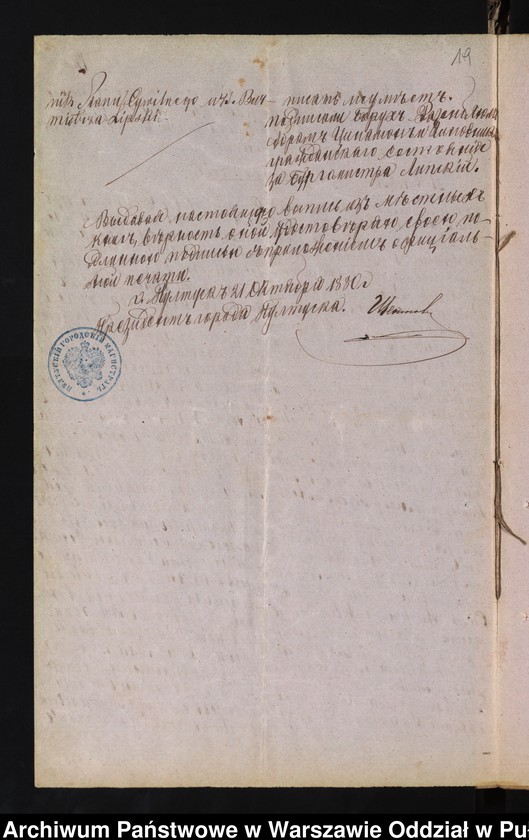 19
nik Stanu Cywilnego w z. Bur-
mistrza Lipski.
писать не умѣетъ.
подписали
гражданскаго состоянія
за Бургомистра Липскій.
Выдавая настоящую выпись изъ мѣстныхъ
книгъ, вѣрность оной удостовѣряю своею по-
длинною подписью съ приложеніемъ оффиціаль-
ной печати.
г. Пултускъ 21 Октября 1880 г
Президентъ города Пултуска.
ПУЛТУСКІЙ ГОРОДСКІЙ МАГИСТРАТЪ
Archiwum Państwowe w Warszawie Oddział w Pu